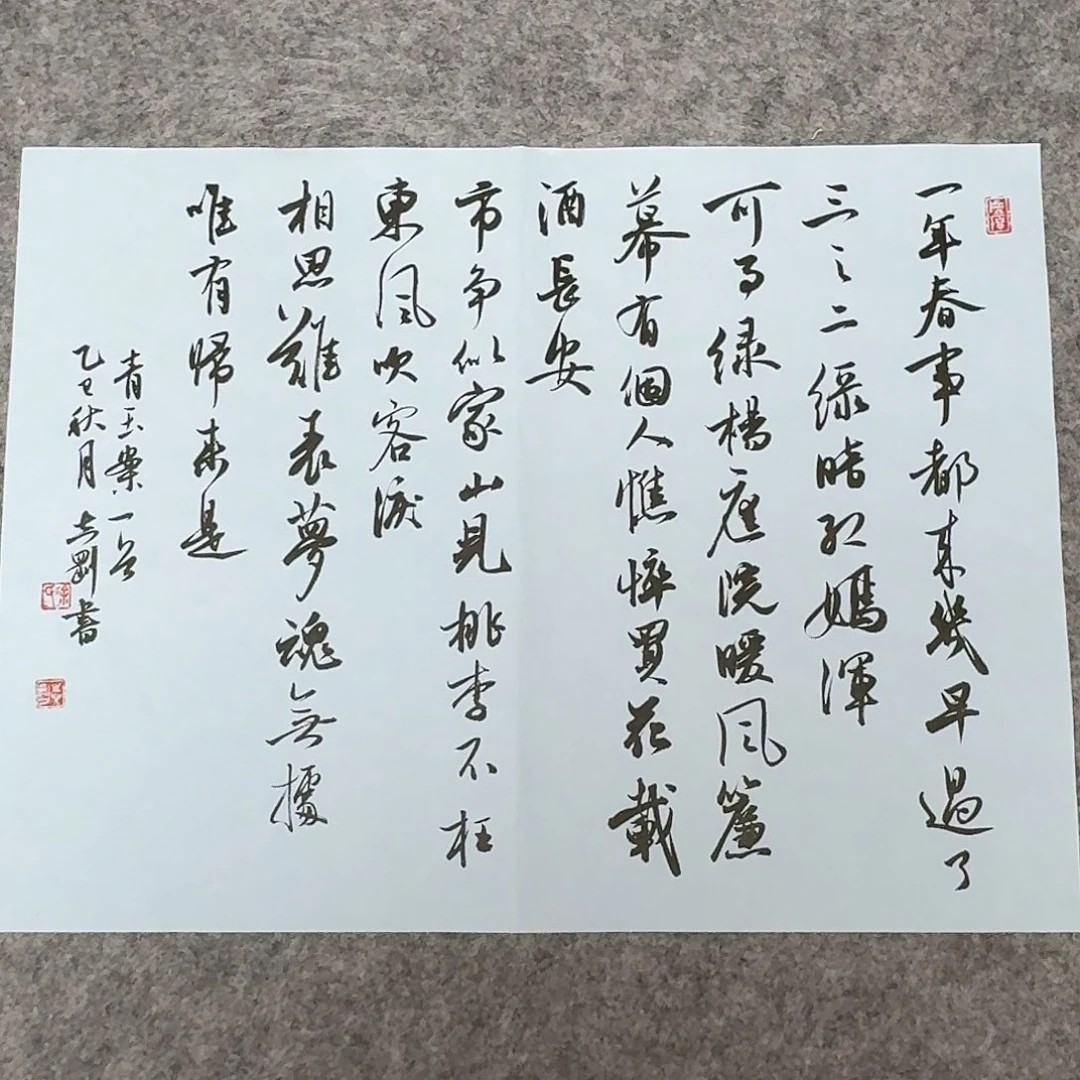 一年春事都来幾早過了
三之二緑暗红嫣渾
可事緑楊庭院暖風簾
幕有個人憔悴買花載
酒長安
市争似家山見桃李不枉
東風吹客淚
相思難表夢魂無據
唯有歸来是
青玉案一首
乙巳秋月志剛書